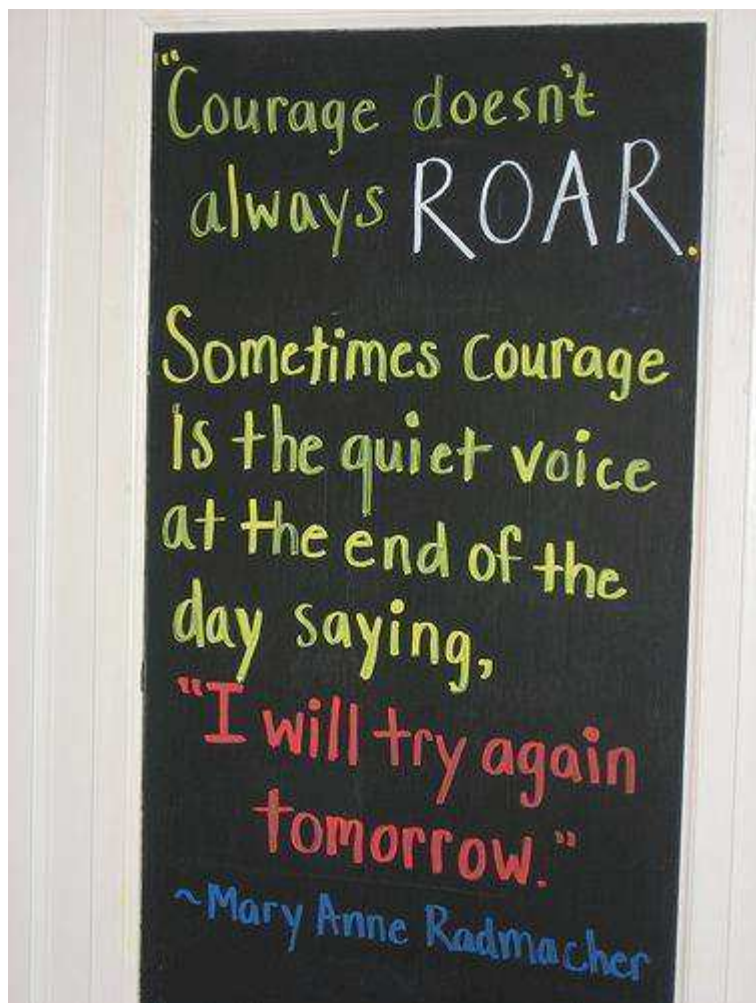 "Courage doesn't
always ROAR.
Sometimes courage
is the quiet voice
at the end of the
day saying,
"I will try again
tomorrow."
~Mary Anne Radmacher